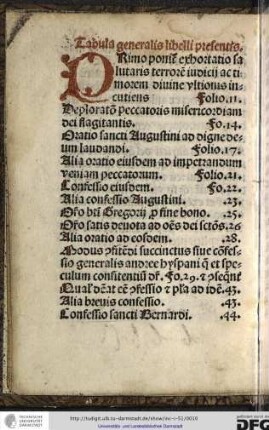 Tabula generalis libelli presentis.
PRimo ponit̃ exhortatio sa
lutaris terrorē iudicij ac ti
morem diuine vltionis in
cutiens Folio.11.
Deploratō peccatoris misericordiam
dei flagitantis. Fo.14.
Oratio sancti Augustini ad digne de
um laudandi. Folio.17.
Alia oratio eiusdem ad impetrandum
veniam peccatorum. Folio.21.
Confessio eiusdem. Fo.22.
Alia confessio Augustini. .23.
Gregorij fine bono. .25.
satis deuota ad oēs dei sctōs .26
Alia oratio ad eosdem. .28.
Modus succinctus siue cōfes-
sio generalis andree hyspani et spe-
culum confitentiū Fo.29.
ad idē .43.
Alia breuis confessio. .43.
Confessio sancti Bernardi. .44.
http://tudigit.ulb.tu-darmstadt.de/show/inc-v-51/0010
Universitäts- und Landesbibliothek Darmstadt
gefördert durch
DFG